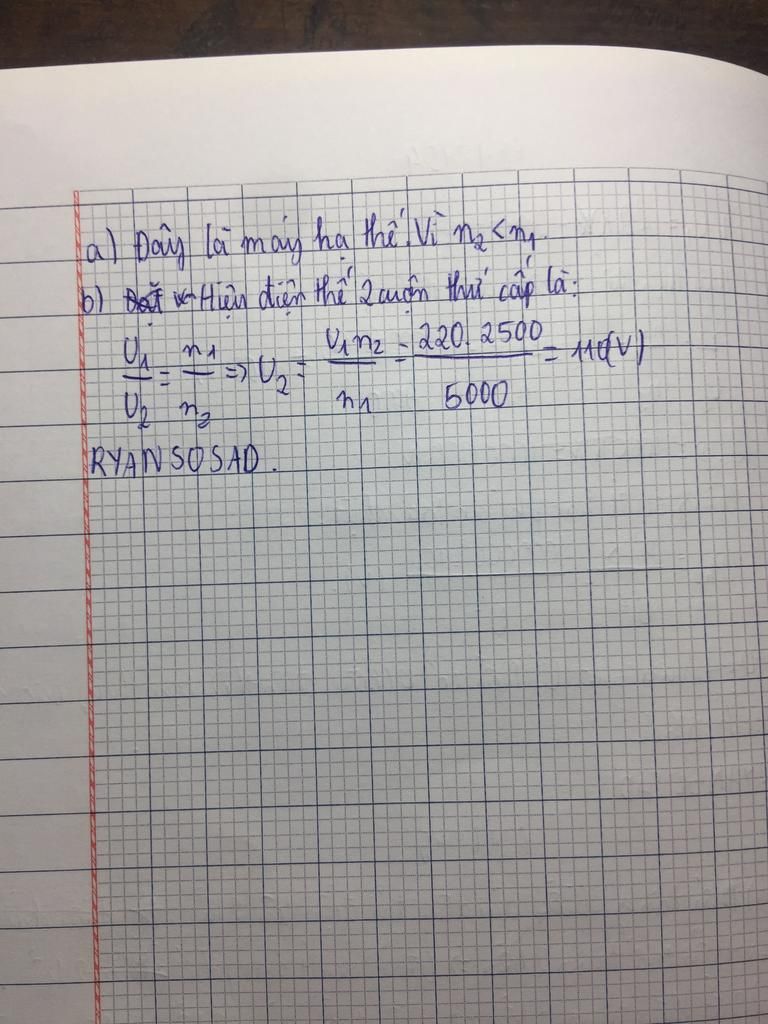 a) Đây là máy hạ thế. Vì n₂ < n₁.
b) Hiệu điện thế 2 cuộn thứ cấp là:
U₁/U₂ = n₁/n₂ => U₂ = U₁n₂/n₁ = 220.2500/5000 = 110(V)
RYANSOSAD.